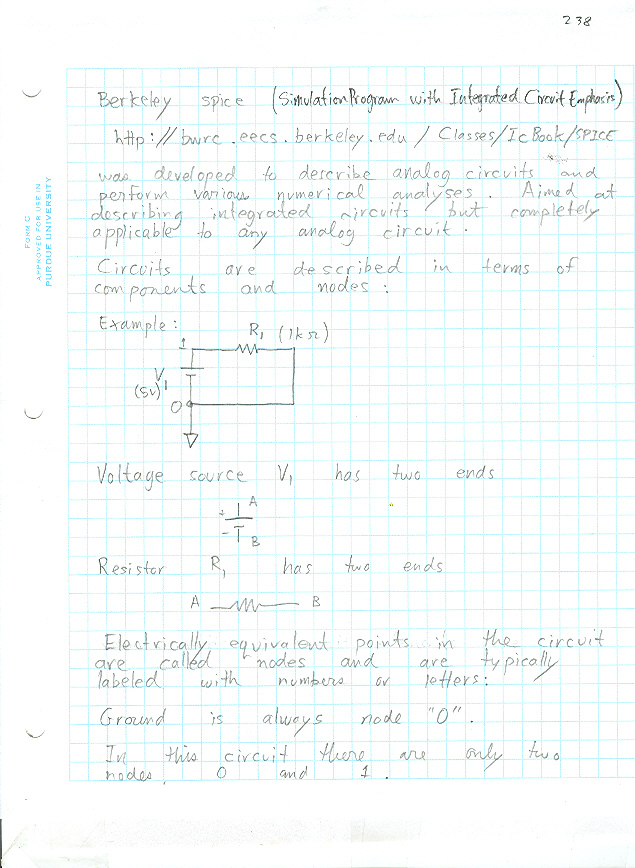 238
Berkeley spice (Simulation Program with Integrated Circuit Emphasis)
http://bwrc.eecs.berkeley.edu/Classes/IcBook/SPICE
was developed to describe analog circuits and
perform various numerical analyses. Aimed at
describing integrated circuits but completely
applicable to any analog circuit.
FORM C
APPROVED FOR USE IN
PURDUE UNIVERSITY
Circuits are described in terms of
components and nodes:
Example:
R1 (1kΩ)
1
V1
(5V)
0
Voltage source V1 has two ends
+ A
- B
Resistor R1 has two ends
A B
Electrically equivalent points in the circuit
are called nodes and are typically
labeled with numbers or letters:
Ground is always node "0".
In this circuit there are only two
nodes, 0 and 1.